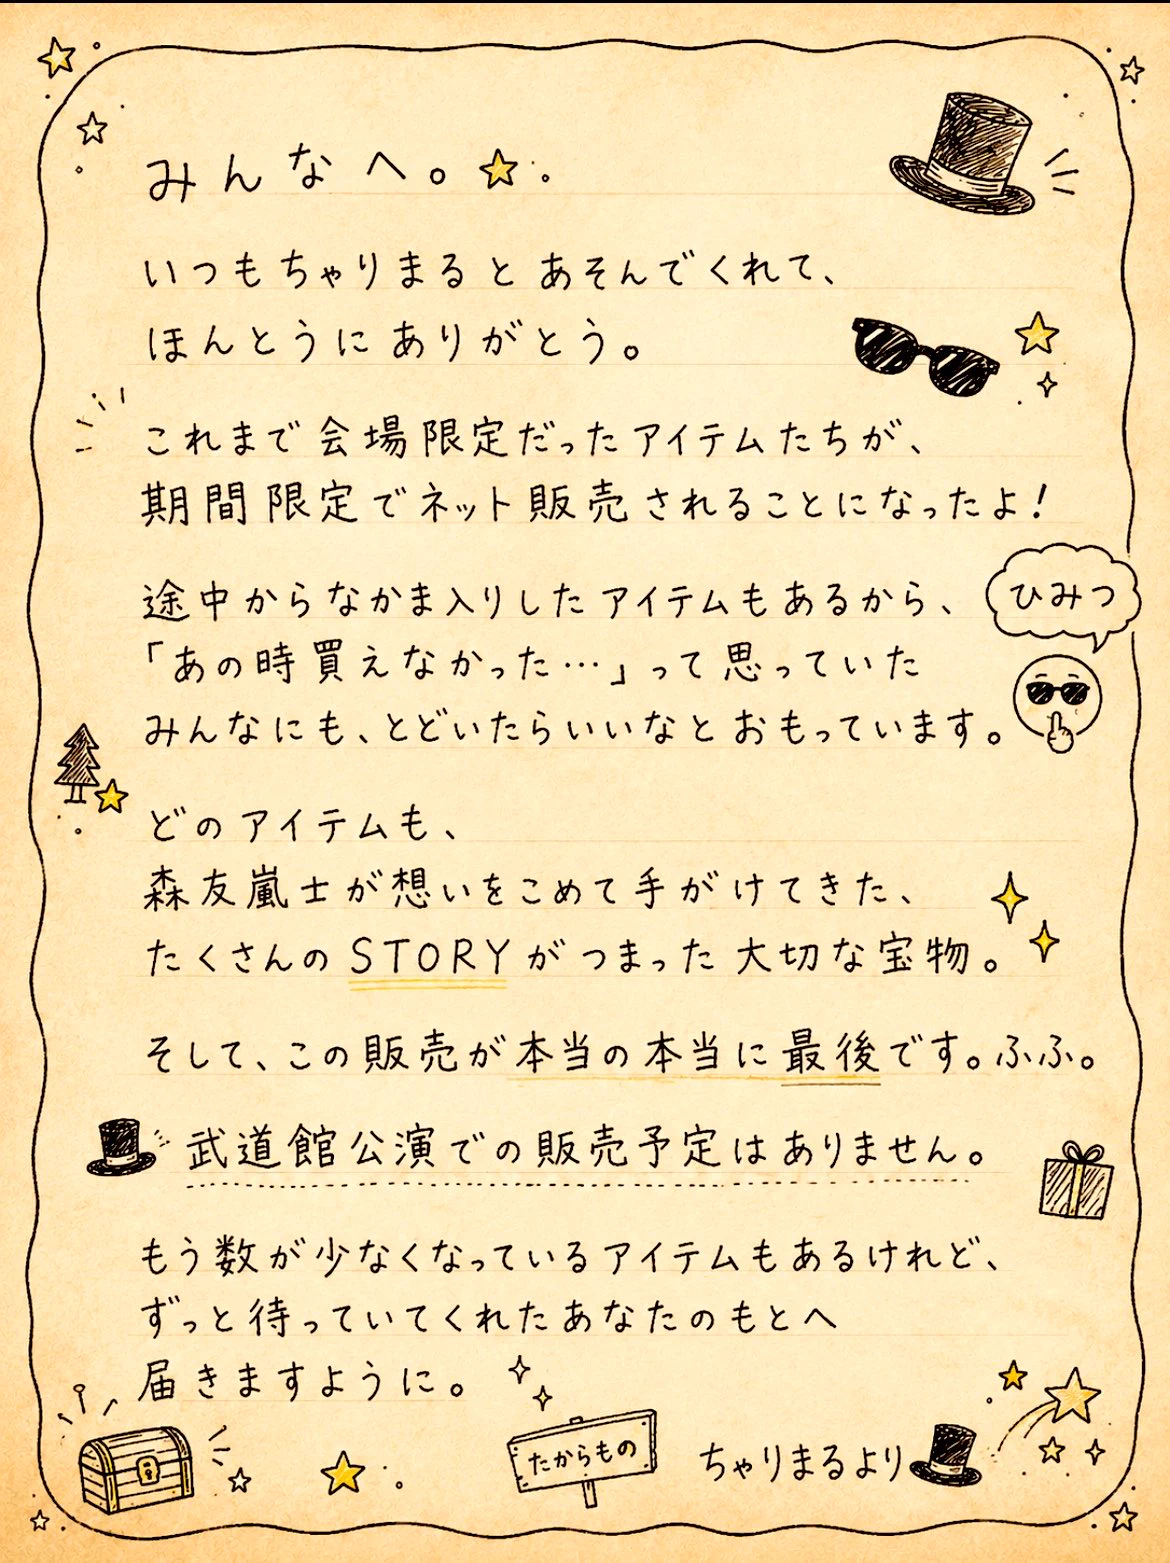 みんなへ。
いつもちゃりまるとあそんでくれて、
ほんとうにありがとう。
これまで会場限定だったアイテムたちが、
期間限定でネット販売されることになったよ!
途中からなかま入りしたアイテムもあるから、
「あの時買えなかった…」って思っていた
みんなにも、とどいたらいいなとおもっています。
ひみつ
どのアイテムも、
森友嵐士が想いをこめて手がけてきた、
たくさんのSTORYがつまった大切な宝物。
そして、この販売が本当の本当に最後です。ふふ。
武道館公演での販売予定はありません。
もう数が少なくなっているアイテムもあるけれど、
ずっと待っていてくれたあなたのもとへ
届きますように。
たからもの
ちゃりまるより